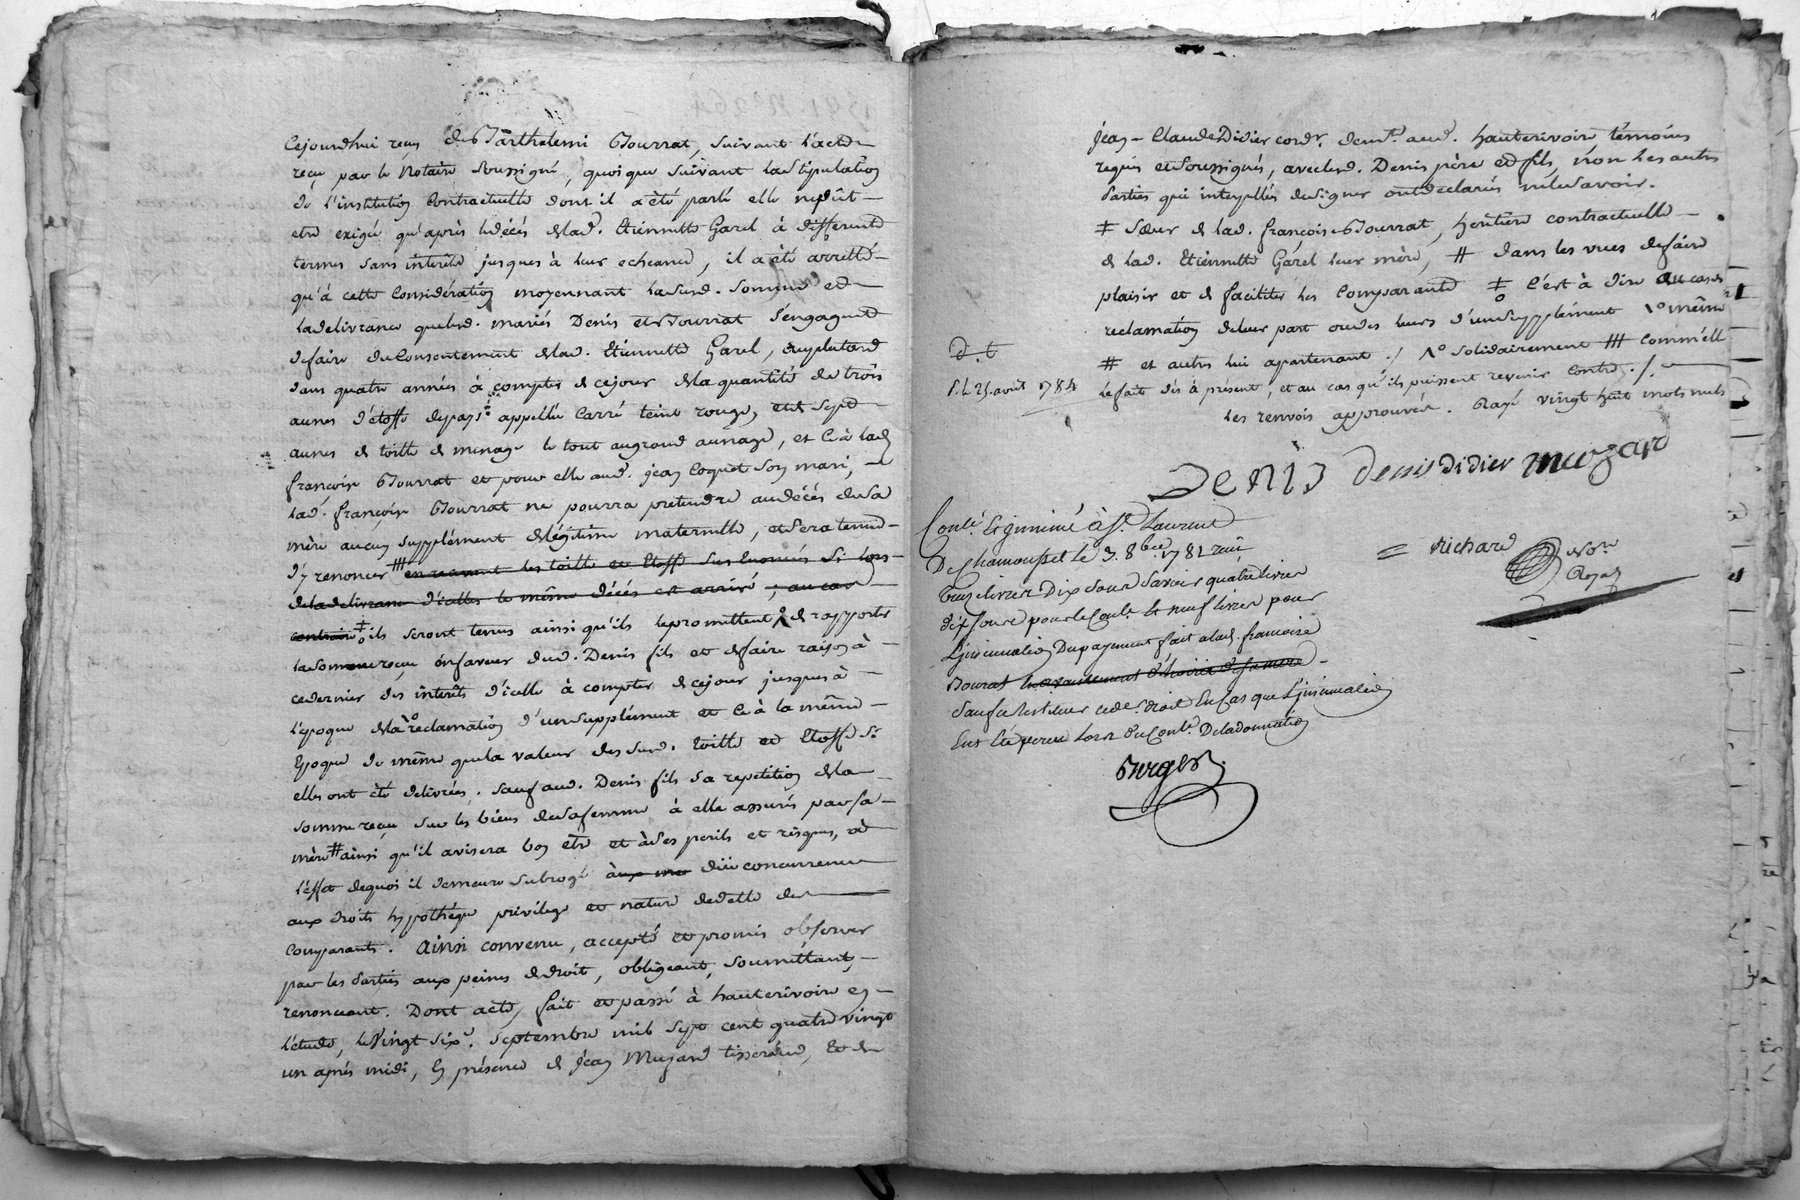 Cejourdhui reçu de Barthelemi Bourrat, suivant l'acte
reçu par le Notaire soussigné, quoique suivant la stipulation
de l'institution contractuelle dont il a été parlé elle ne put
etre exigée qu'après le décés de lad. Etiennette Garel à differents
termes sans interêts jusques à leur echeance, il a été arretté
qu'à cette considération moyennant lasusd. somme et
la delivrance que lesd. mariés Denis et Bourrat s'engagent
de faire du consentement de lad. Etiennette Garel, au plutard
dans quatre années à compter de cejour de la quantité de trois
aunes d'étoffe de pays appellée Carré teint rouge, et de sept
aunes de toille de menage le tout au grand aunage, et ce à lad.
françoise Bourrat et pour elle aud. jean Coquet son mari,
lad. françoise Bourrat ne pourra pretendre au décés de sa
mère aucun supplément de légitime maternelle, et sera tenue
d'y renoncer # en recevant les toille et Etoffe sus enoncées si lors
de la delivrance d'icelles le même décés est arrivé, au cas
contraire ils seront tenus ainsi qu'ils le promittent de rapporter
la somme reçue en faveur dud. Denis fils et de faire raison à
ce dernier des interêts d'icelle à compter de cejour jusques à
l'epoque de la reclamation d'un supplément et ce à la même
Epoque de même que la valeur des susd. toille et Etoffe si
elles ont été delivrées. sauf aud. Denis fils sa repetition de la
somme reçue sur les biens de sa femme à elle assurés par sa
mère # ainsi qu'il avisera bon etre et à ses perils et risques, à
l'effet de quoi il demeure subrogé à due concurrence
aux droits hypothéque privilege et nature de dette des
comparants. Ainsi convenu, accepté et promis observer
par les Parties aux peines de droit, obligeant, soumettant,
renonceant. Dont acte, fait et passé à hauterivoire en
l'etude, le vingt six. Septembre mil sept cent quatre vingt
un après midi, En présence de Jean Muzard tisserand, et de
Jean-Claude Didier cordr. demt. aud. hauterivoire témoins
requis et soussignés, avec lesd. Denis père et fils, non les autres
Parties qui interpellés de signer ont declarés ne le savoir.
‡ sœur de lad. françoise Bourrat, heritière contractuelle
de lad. Etiennette Garel leur mère, # dans les vues de faire
plaisir et de faciliter les Comparants ‡ c'est à dire au cas de
reclamation de leur part ou des leurs d'un supplément 1° même
# et autres lui apartenant ./ 1° solidairement ### comm'elle
le fait dès à présent, et au cas qu'ils puissent revenir contre ./.
les renvois approuvés. Rayé vingt huit mots nuls
d. t
25. août 1784
Denis Denis Didier Muzard
= Richard Nore.
Royal
Conlé. Et insinué à St. Laurent
De Chamousset le 3. 8bre 1781 reçu
treize livres Dix sous savoir quatre livres
dix sous pour le Conle. Et neuf livres pour
L'insinuation Du payement fait à lad. francoise
Bourrat
sauf a restituer ce de. droit En cas que L'insinuation
Eut Eté perçue Lors du Conle. De la donnation
Berger